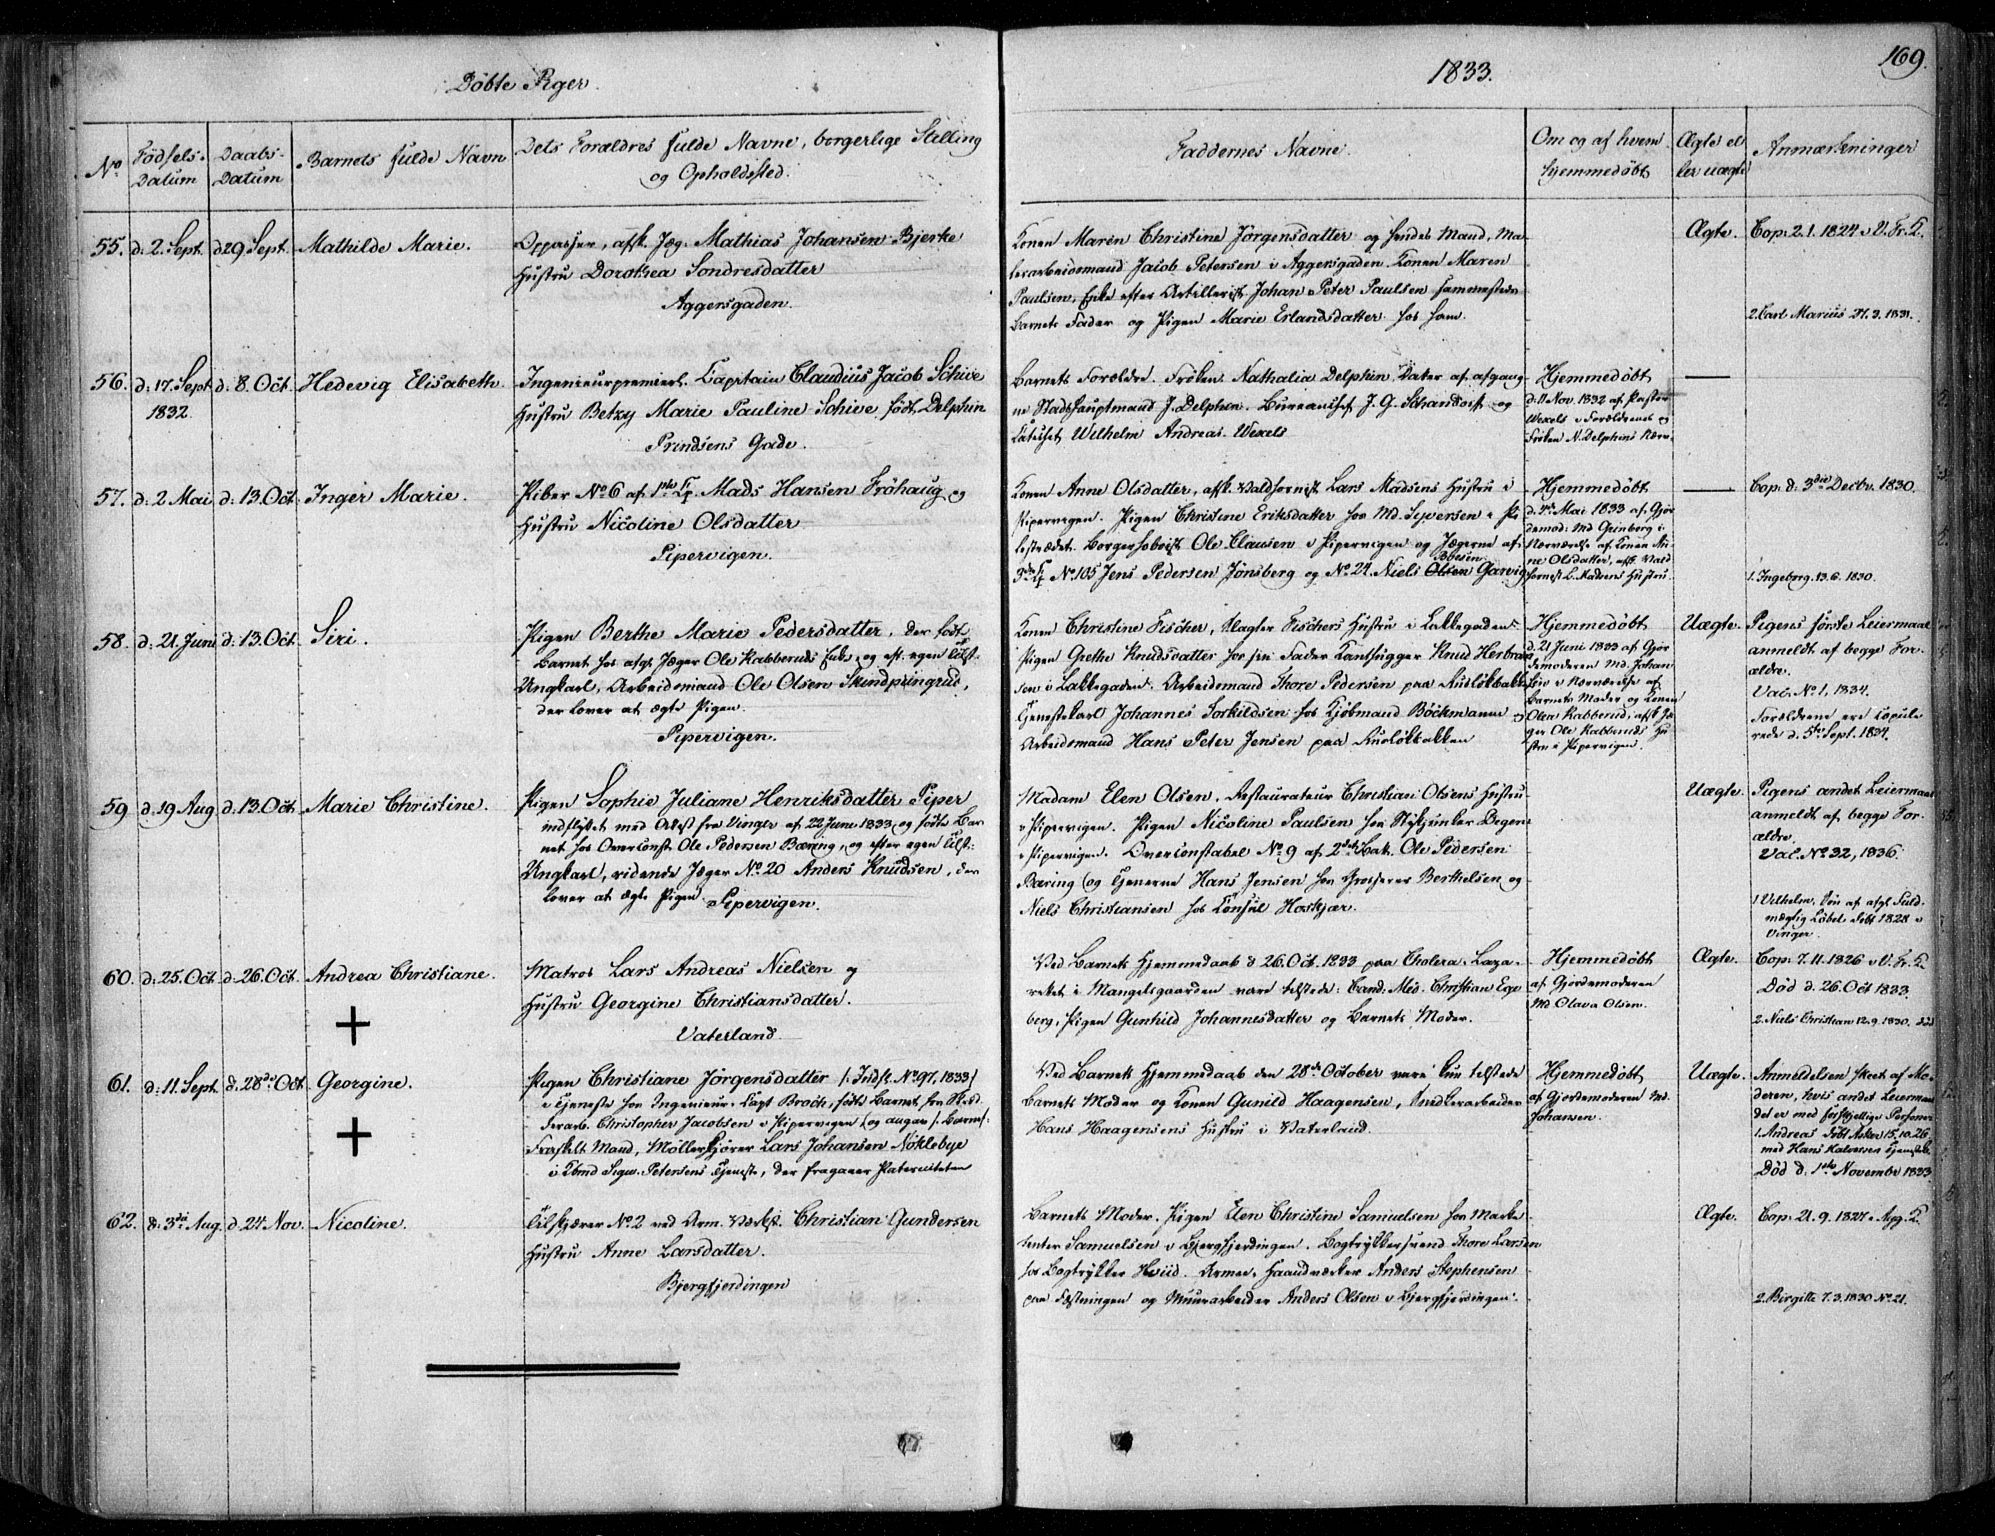 169.
Döbte Piger.
1833.
No
Födsels-Datum
Daabs-Datum
Barnets fulde Navn
Dets Forældres fulde Navne, borgerlige Stilling
og Opholdssted.
Faddernes Navne.
Om og af hvem
hjemmedöbt
Ægte el
ler uægte
Anmærkninger
55. d. 2. Sept. d 29 Sept. Mathilde Marie.
Oppasser, afsk. Jæg. Mathias Johansen Bjerke
Hustru Dorothea Sondresdatter
Aggersgaden.
Konen Maren Christine Jörgensdatter og hendes Mand, Ma-
lerarbeidsmand Jacob Petersen i Aggersgaden. Konen Maren
Paulsen, Enke efter Artillerist Johan Peter Paulsen sammesteds
Barnets Fader og Pigen Marie Erlandsdatter hos ham.
Ægte.
Cop. 2. 1. 1824 i V. Fr. K.
2. Carl Marius 27. 3. 1831.
56. d. 17. Sept. 1832. d. 8. Oct. Hedevig Elisabeth
Ingenieurpremierl. Capitain Claudius Jacob Schive
Hustru Betzy Marie Pauline Schive, födt Delphin
Prindsens Gade.
Barnets Forældre. Fröken Nathalia Delphin, Dater af afgang-
ne Stadshauptmand J. Delphin. Bureauchef J. G. Schandorf og
Catechet Wilhelm Andreas Wexels
Hjemmedöbt
d. 11 Nov. 1832 af Pastor
Wexels i Forældrenes og
Fröken N. Delphins Nærv.
57. d. 2 Mai d. 13. Oct. Inger Marie.
Piber No 6 af 1ste Cp. Mads Hansen Fröhaug og
Hustru Nicoline Olsdatter
Pipervigen.
Konen Anne Olsdatter, afsk. Valdhornist Lars Madsens Hustru i
Pipervigen. Pigen Christine Eriksdatter hos Md. Syversen i Pi-
lestrædet. Borgerhobvist Ole Clausen i Pipervigen og Jægerne af
3de Cp. No 105 Jens Pedersen Jönsberg og No 24. Niels Olsen Boesen Garvig
Hjemmedöbt
d. 4de Mai 1833 af Gjor
demod: Md Grinberg i
Nærværelse af Konen An-
ne Olsdatter, afsk. Vald
hornist L. Madsens Hustru.
Cop. d. 3die Decbr. 1830.
1. Ingeborg. 13. 6. 1830.
58. d. 21. Juni d. 13. Oct. Siri.
Pigen Berthe Marie Pedersdatter, der födt
Barnet hos afg. Jæger Ole Rabberuds Enke, og eft. egen Tilst.
Ungkarl, Arbeidsmand Ole Olsen Skindpungrud,
der lover at ægte Pigen.
Pipervigen.
Konen Christine Fischer, Slagter Fischers Hustru i Lakkegaden.
Pigen Grethe Knudsdatter hos sin Fader Kanthugger Knud Herbran
sen i Lakkegaden. Arbeidsmand Thore Pedersen paa Rudlökbakk
Tjenestekarl Johannes Torkildsen hos Kjöbmand Böckmann og
Arbeidsmand Hans Peter Jensen paa Rudlökbakken
Hjemmedöbt
d. 21 Juni 1833 af Gjor
demoderen Md. Johan
i Nærværelse af
Barnets Moder og Konen
Olea Rabberud, afsk Jæ-
ger Ole Rabberuds Hu
stru i Pipervigen.
Uægte.
Pigens förste Leiermaal
anmeldt af begge For-
ældre.
Vac. No 1, 1834.
Forældrene ere copule
rede d. 5te Sept. 1834.
59 d. 19 Aug d. 13. Oct. Marie Christine.
Pigen Sophie Juliane Henriksdatter Piper
indflyttet med Attest fra Vinger af 22 Juni 1833, og födte Bar
net hos Overconst. Ole Pedersen Bæring, og efter egen Tilst.
Ungkarl, ridende Jæger No. 20 Anders Knudsen, der
lover at ægte Pigen.
Pipervigen.
Madam Elen Olsen, Restaurateur Christian Olsens Hustru
i Pipervigen. Pigen Nicoline Paulsen hos Stykjunker Degen
i Pipervigen. Overconstabel No 9 af 2det Bat. Ole Pedersen
Bæring og Tjenerne Hans Jensen hos Grosserer Berthelsen og
Niels Christiansen hos Consul Hoskjær.
Uægte.
Pigens andet Leiermaal
anmeldt af begge For-
ældre.
Vac. No 32, 1836.
1. Vilhelm, Sön af afg. Fuld-
mægtig Löbel födt 1828 i
Vinger.
60. d. 25. Oct d. 26. Oct. Andrea Christiane.
+
Matros Lars Andreas Nielsen og
Hustru Georgine Christiansdatter.
Vaterland.
Ved Barnets Hjemmedaab d 26. Oct. 1833 paa Cholera. Laza-
rethet i Mangelsgaarden vare tilstede: Cand. Med. Christian Ege
berg, Pigen Gunhild Johannesdatter og Barnets Moder.
Hjemmedöbt
af Gjordemoderen
Md Olava Olsen.
Ægte.
Cop. 7. 11. 1826 i V. Fr. K.
Död d. 26. Oct 1833.
2. Niels Christian 12. 9. 1830. död
61. d. 11. Sept. d. 28de Oct. Georgine.
+
Pigen Christiane Jörgensdatter /: Indfl. No. 97, 1833/
i Tjeneste hos Ingenieur-Capt Broch, födte Barnet hos
Christopher Jacobsen i Pipervigen (og angav s. Barnef.
Fraskilt Mand, Möllerkjörer Lars Johansen Nöklebye
i Kbmd Sigw. Petersens Tjeneste, der fragaaer Paterniteten
Ved Barnets Hjemmedaab den 28de October vare kun tilstede
Barnets Moder og Konen Gunild Haagensen, Snedkerarbeider
Hans Haagensens Hustru i Vaterland.
Hjemmedöbt
af Gjordemoderen Md.
Johansen.
Uægte.
Anmeldelsen skeet af Mo-
deren, hvis andet Leiermaal
det er med forskjellige Personer
1. Andreas födt Asker 15. 10. 26.
med Hans Halvorsen
Död d. 1ste Novembr 1833.
62. d. 3die Aug. d. 24 Nov. Nicoline.
Tilskjærer No. 2 ved Arm. Værkst. Christian Gundersen
Hustru Anne Larsdatter.
Bjergfjerdingen
Barnets Moder. Pigen Elen Christine Samuelsen hos Marke
tenter Samuelsen i Bjergfjerdingen. Bogtrykkersvend Thore Larsen
hos Bogtrykker Hviid. Armee-Haandværker Anders Stephensen
paa Fæstningen og Muurarbeider Anders Olsen i Bjergfjerdingen.
Ægte.
Cop. 21. 9. 1827 i Agg. K.
2. Birgitte 7. 3. 1830 No. 21.